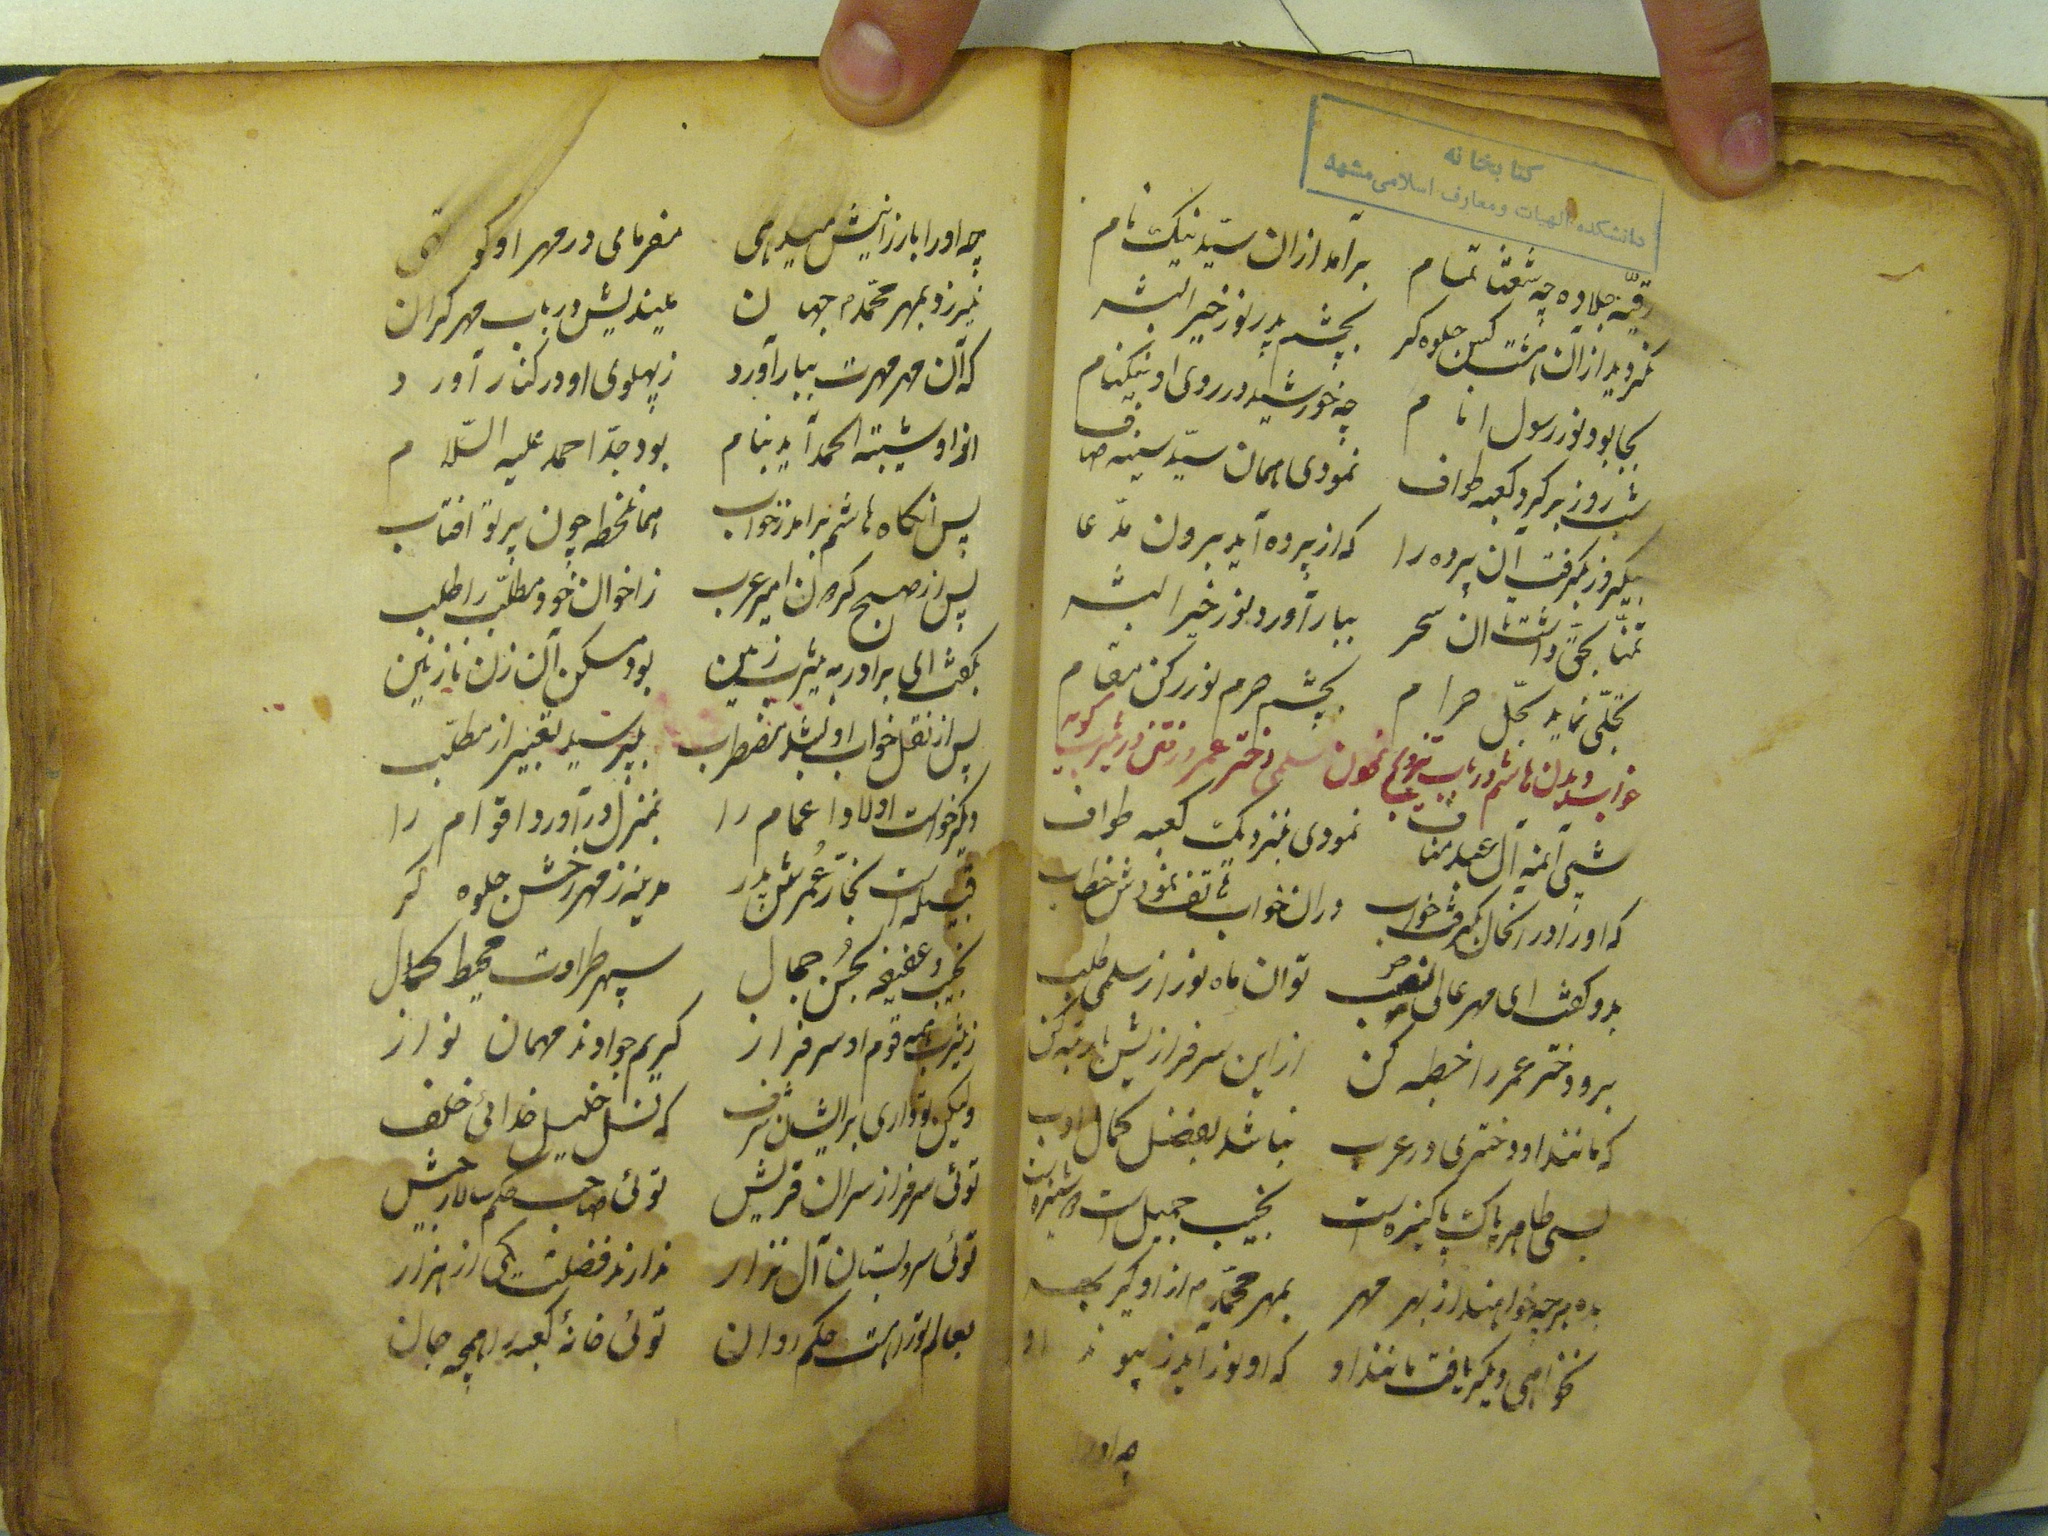 کتابخانه
دانشکده الهیات و معارف اسلامی مشهد
رقیه خلاوه چه شعثا تمام برآمد ازان سید نیکت نام
نگردید ازان جلوه کر بچشم پدر نور خیر البشر
بجا بود نور رسول انام چه خورشید در روی او نیکنام
شب روز بر کرد کعبه طواف نمودی همان سید سینه صاف
بیکروز بگرفت آن پرده را که از پرده آید برون مدعا
تمنا بحق داشت ان سحر ببار آورد نور خیر البشر
تجلی نماید بحل حرام بچشم حرم نور رکن مقام
خواب دیدن هاشم در باب تزویج نمودن سلمی دختر عمرو رفتن در یثرب گوید
شبی آل عبد مناف نمودی بنزدیک کعبه طواف
که او را در انحال بگرفت خواب دران خواب هاتف نمودش خطاب
بدو گفت ای مهر عالی نصب تو ان ماه نور از سلمی طلب
برو دختر عمر را خطبه کن از این سرفرازیش با رتبه کن
که مانند او دختری در عرب نباشد بفضل کمال ادب
بسی طاهر پاک پاکیزه است نجیب جمیل است دوشیزه است
بده هرچه خواهند از بهر مهر بمهر محمد م از او گیر بچهر
نخواهی دیگر یافت مانند او که او نور آید ز پیوند او
چه او را
چه او را بارزانیش میدهی مفرمای در مهر او کوتهی
نیرزد بمهر محمد م جهان میندیش در باب مهر کران
که آن مهر مهرت ببار آورد ز پهلوی او در کنار آورد
از او شیبة الحمد آید بنام بود جد احمد علیه السلام
پس انکاه هاشم برامد زخواب همانلحظه چون پرتو افتاب
پس از صبح کردن امیر عرب ز اخوان خود مطلب را طلب
بگفت ای برادر به یثرب زمین بود مسکن آن زن نازنین
پس از نقل خواب او بشد مضطراب بپرسید تعبیر از مطلب
دیگر خواست اولاد اعمام را بمنزل در آورد اقوام را
قبیله است نجار عمرش پدر مدینه ز مهر رخش جلوه کر
نجیب و عفیفه بحسن جمال سپهر طراوت محیط کمال
زیثرب همه قوم او سرفراز کریم جواوند مهمان نواز
ولیکن تو داری بر ایشان شرف که نسل خلیل خدائی خلف
توئی سرفراز سران قریش توئی صاحب حکم سالار جیش
توئی سرو بستان آل نزار ندارند فضلت یکی از هزار
بعالم تو راهست حکم روان توئی خانهٔ کعبه را همچه جان